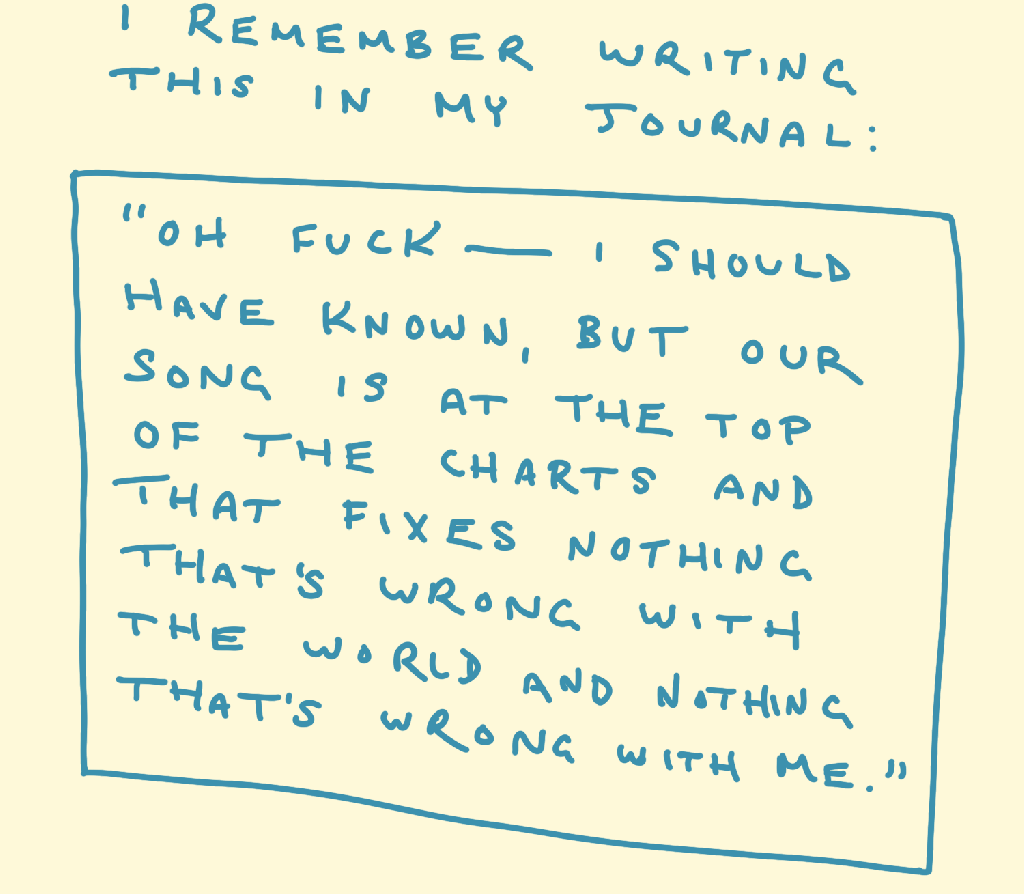 I REMEMBER WRITING
THIS IN MY JOURNAL:
"OH FUCK — I SHOULD
HAVE KNOWN, BUT OUR
SONG IS AT THE TOP
OF THE CHARTS AND
THAT FIXES NOTHING
THAT'S WRONG WITH
THE WORLD AND NOTHING
THAT'S WRONG WITH ME."